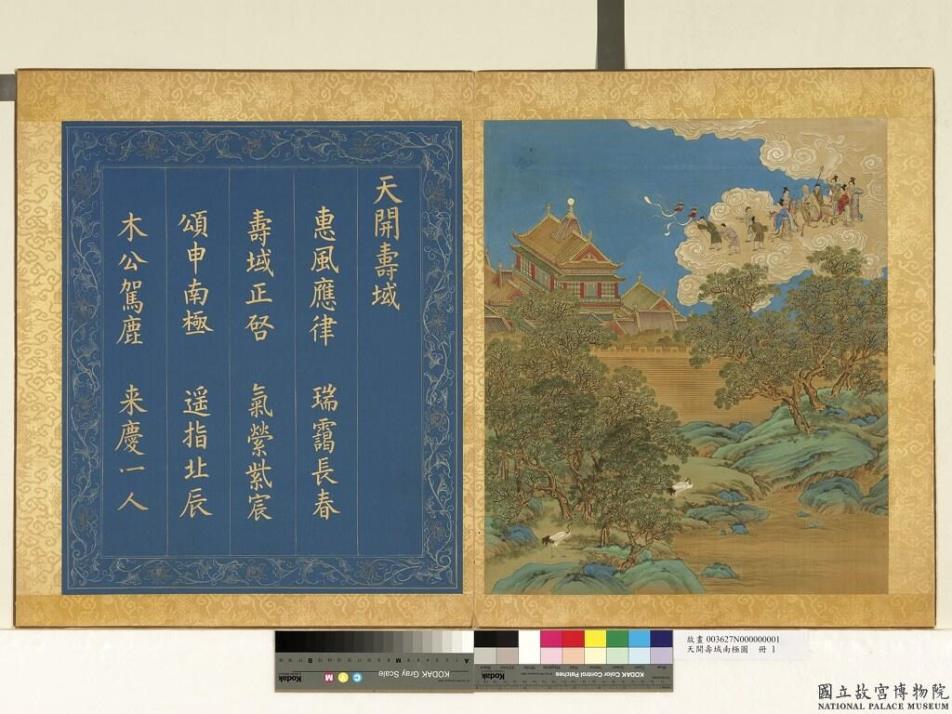 天開壽域
惠風應律 瑞靄長春
壽域正啓 氣縈紫宸
頌申南極 遥指北辰
木公駕鹿 来慶一人
故畫 003627N000000001
天開壽域南極圖 冊 1
KODAK Gray Scale
Kodak
M
Y
C
A
M
B
KODAK Color Control Patches
Kodak
國立故宮博物院
NATIONAL PALACE MUSEUM